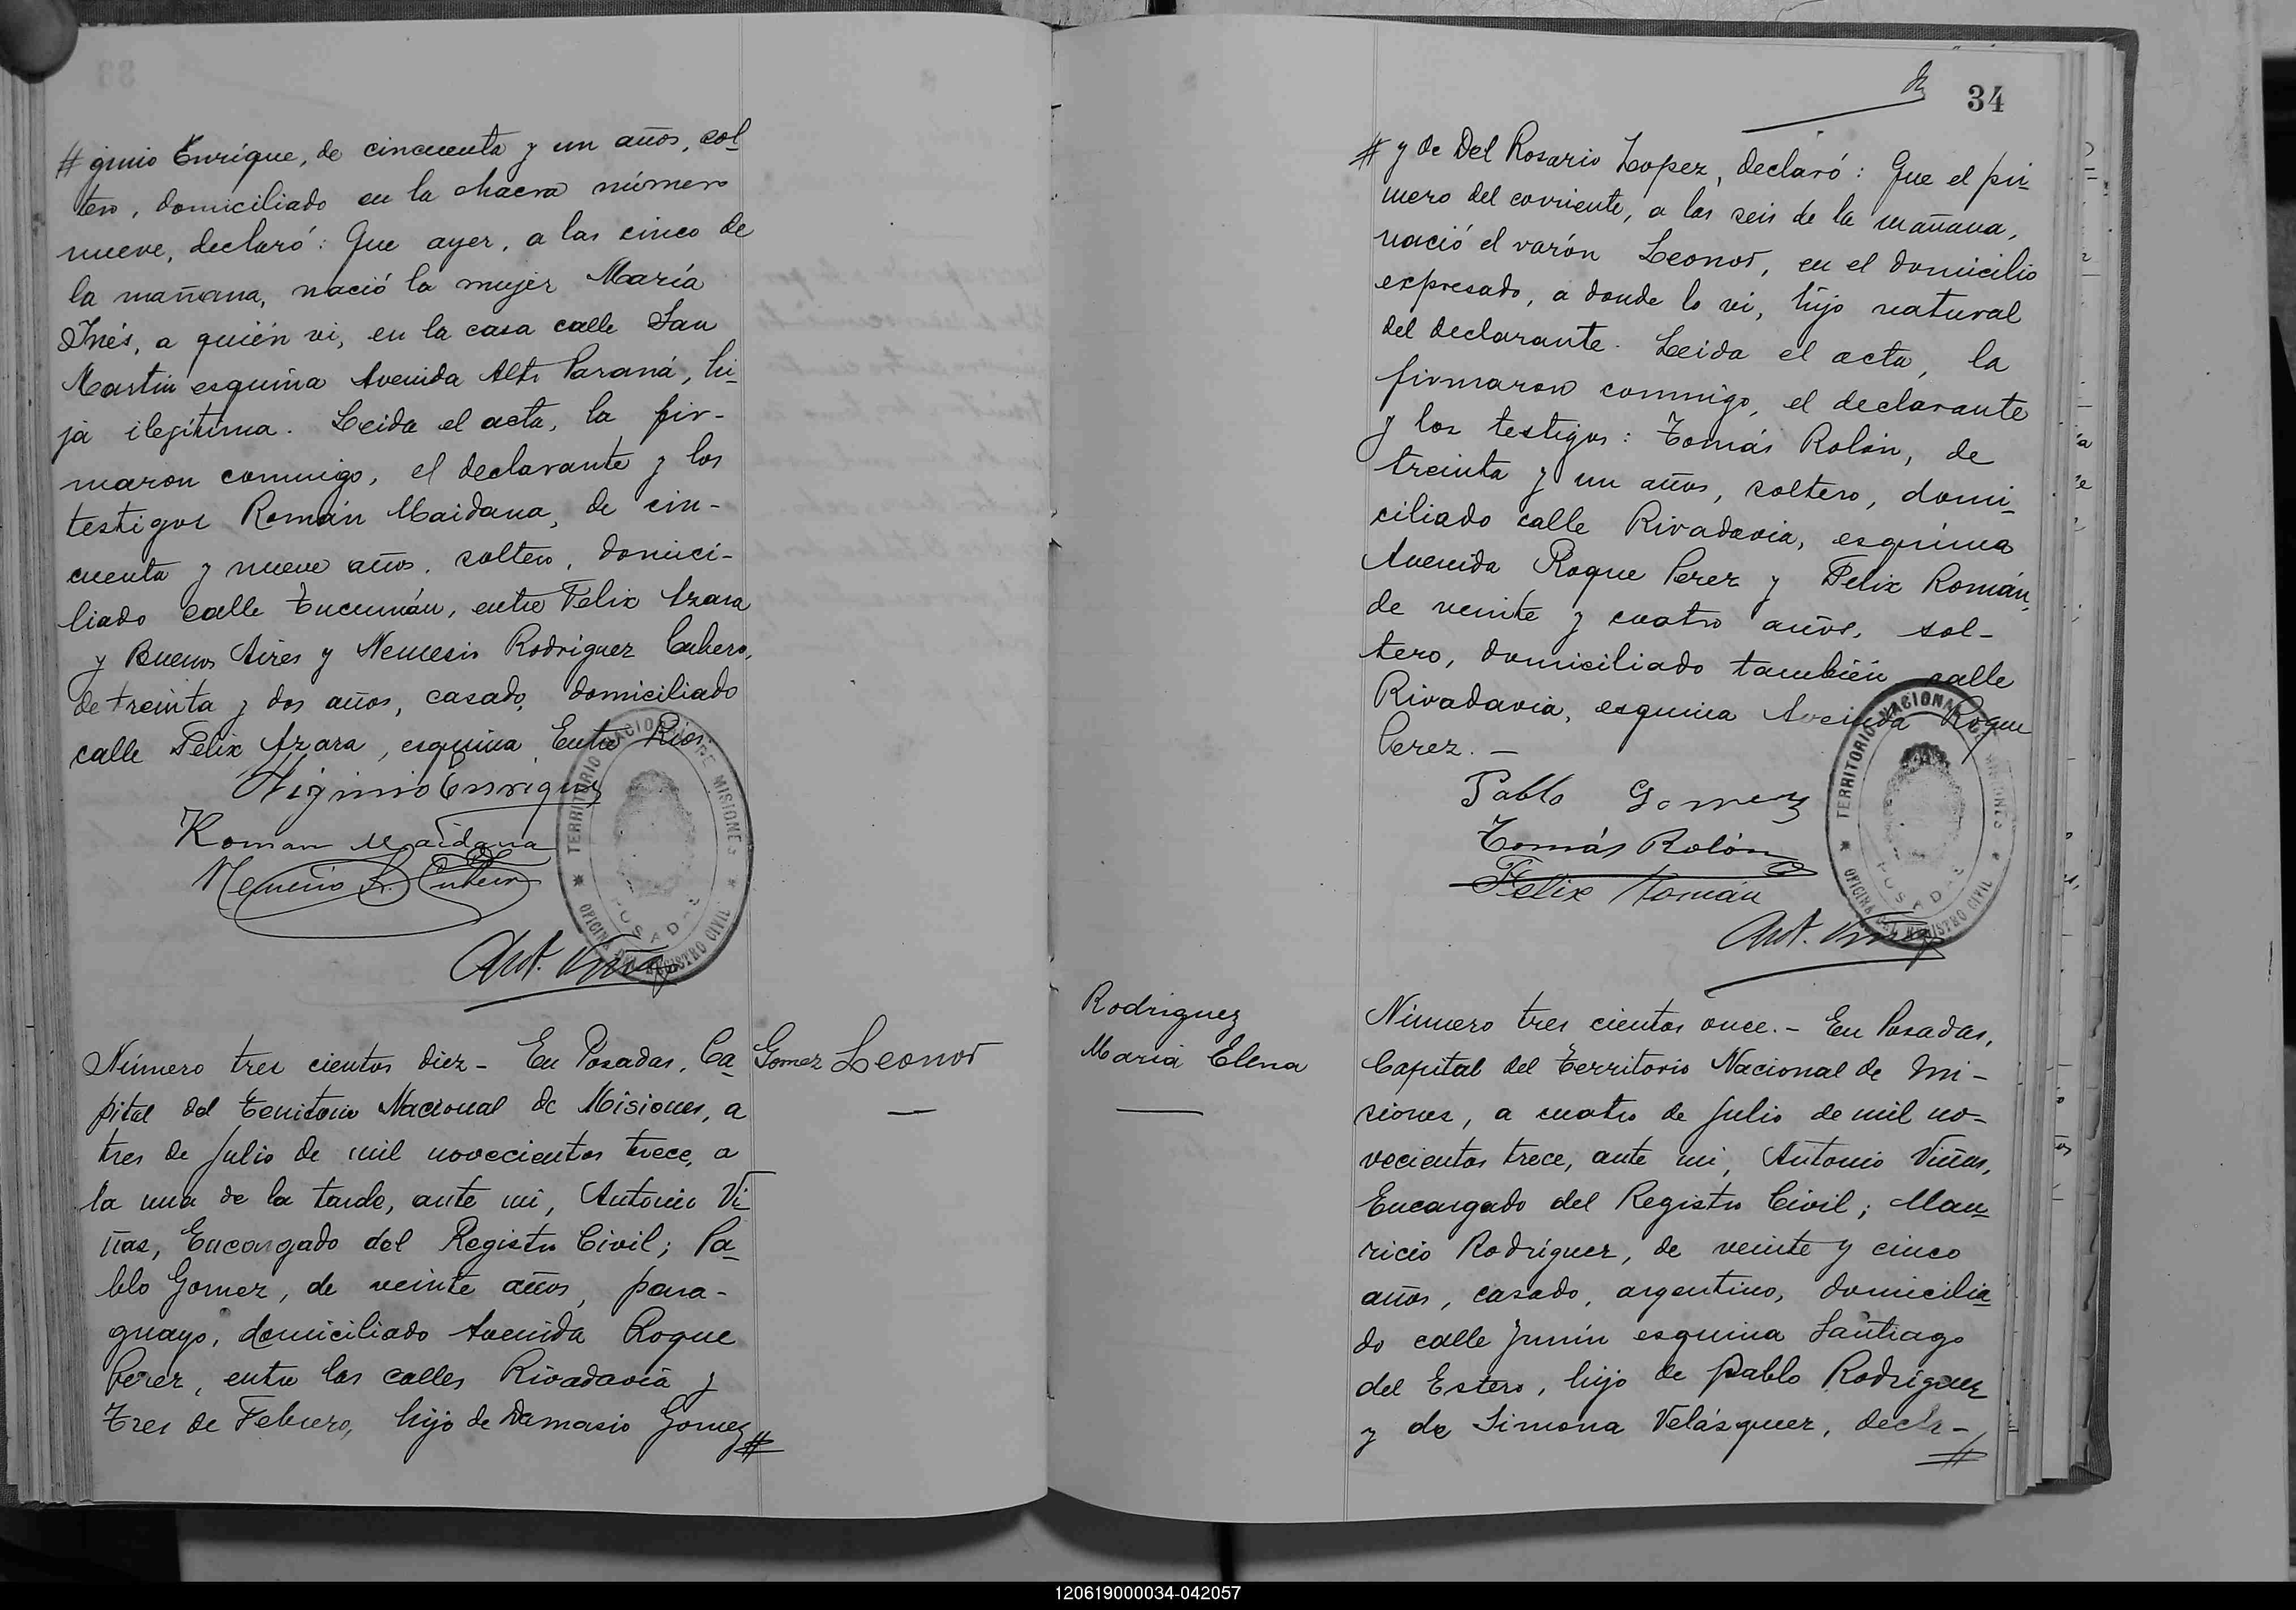 # ginio Enrique, de cincuenta y un años, sol-
tero, domiciliado en la chacra número
nueve, declaró: Que ayer, a las cinco de
la mañana, nació la mujer María
Inés, a quién vi, en la casa calle San
Martin esquina Avenida Alto Paraná, hi-
ja ilegítima. Leida el acta, la fir-
maron conmigo, el declarante y los
testigos Román Maidana, de cin-
cuenta y nueve años, soltero, domici-
liado calle Tucumán, entre Felix Azara
y Buenos Aires y Nemesio Rodriguez Cabero,
de treinta y dos años, casado, domiciliado
calle Felix Azara, esquina Entre Rios.
Higinio Enrique
Roman Maidana
Nemesio R. Cabero
Ant. Viñas
TERRITORIO NACIONAL DE MISIONES
OFICINA DEL REGISTRO CIVIL
POSADAS
Gomez Leonor
Número tres cientos diez - En Posadas, Ca-
pital del Territorio Nacional de Misiones, a
tres de Julio de mil novecientos trece, a
la una de la tarde, ante mi, Antonio Vi-
ñas, Encargado del Registro Civil; Pa-
blo Gomez, de veinte años, para-
guayo, domiciliado Avenida Roque
Perez, entre las calles Rivadavia y
Tres de Febrero, hijo de Damasio Gomez #
34
# y de Del Rosario Lopez, declaró: Que el pri-
mero del corriente, a las seis de la mañana,
nació el varón Leonor, en el domicilio
expresado, a donde lo vi, hijo natural
del declarante. Leida el acta, la
firmaron conmigo, el declarante
y los testigos: Tomás Rolón, de
treinta y un años, soltero, domi-
ciliado calle Rivadavia, esquina
Avenida Roque Perez y Felix Román,
de veinte y cuatro años, sol-
tero, domiciliado también calle
Rivadavia, esquina Avenida Roque
Perez. -
Pablo Gomez
Tomás Rolón
Felix Román
Ant. Viñas
TERRITORIO NACIONAL DE MISIONES
OFICINA DEL REGISTRO CIVIL
POSADAS
Rodriguez
Maria Elena
Número tres cientos once. - En Posadas,
Capital del Territorio Nacional de Mi-
siones, a cuatro de Julio de mil no-
vecientos trece, ante mi, Antonio Viñas,
Encargado del Registro Civil; Mau-
ricio Rodríguez, de veinte y cinco
años, casado, argentino, domicilia-
do calle Junín esquina Santiago
del Estero, hijo de Pablo Rodríguez
y de Simona Velásquez, decla-
#
120619000034-042057